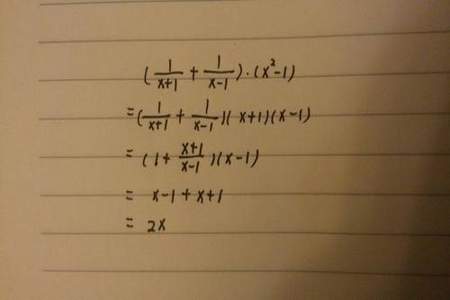 (1/(x+1) + 1/(x-1))·(x²-1)
= (1/(x+1) + 1/(x-1))(x+1)(x-1)
= (1 + (x+1)/(x-1))(x-1)
= x-1+x+1
= 2x